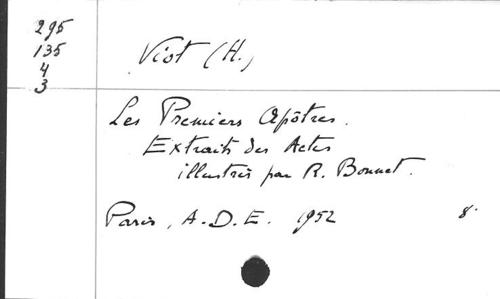 295
135
4
3
Viot (H.)
Les Premiers Apôtres.
Extraits des Actes
illustrés par R. Bonnet.
Paris, A.D.E. 1952 8°